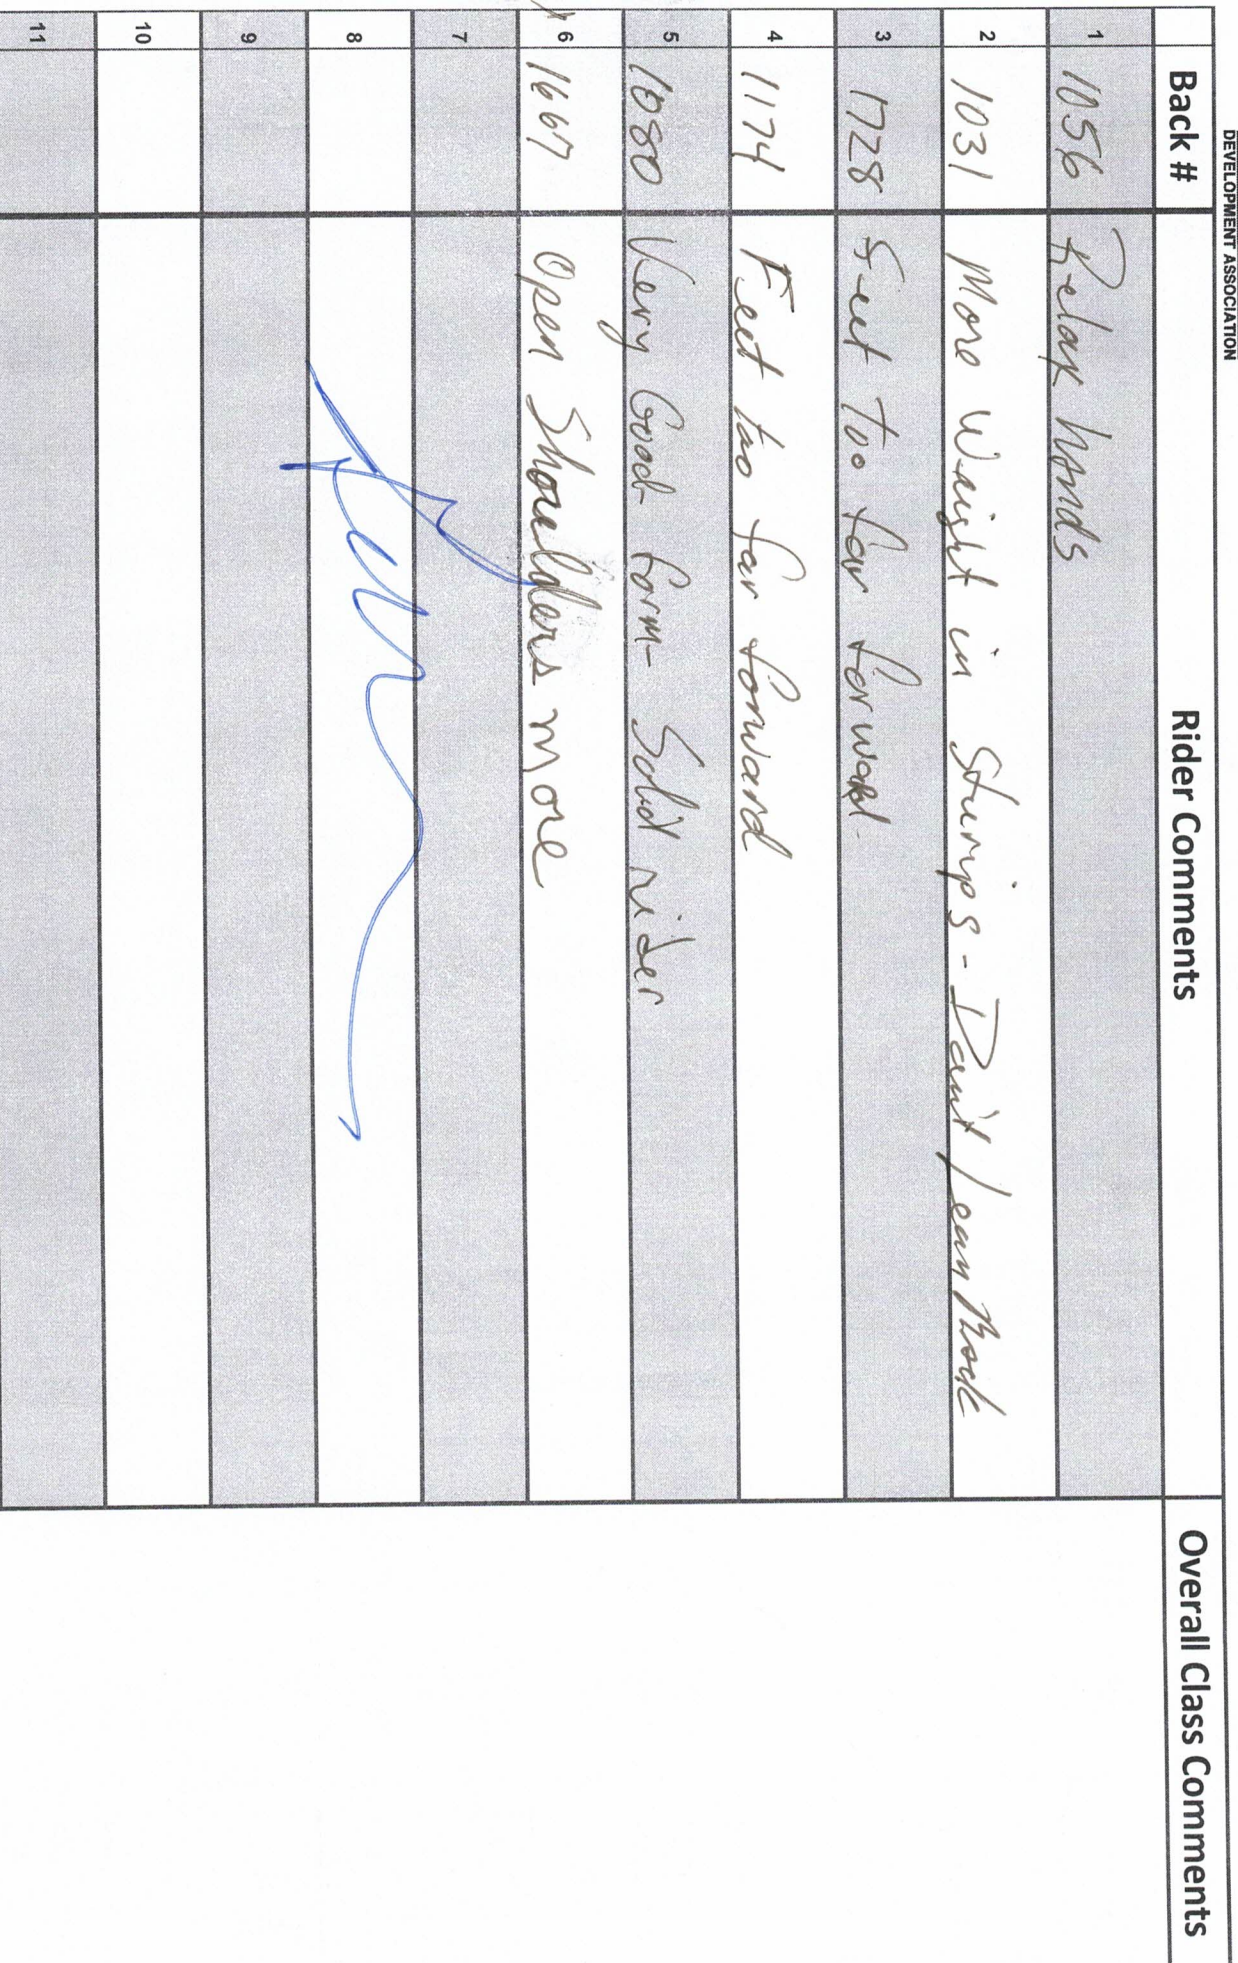 DEVELOPMENT ASSOCIATION
Back # Rider Comments Overall Class Comments
1 1056 Relax hands
2 1031 More Weight in Sturrips - Don't lean Back
3 1728 Feet Too far forward.
4 1174 Feet too far forward
5 1080 Very Good form - Solid rider
6 1667 Open Shoulders more
7
8
9
10
11